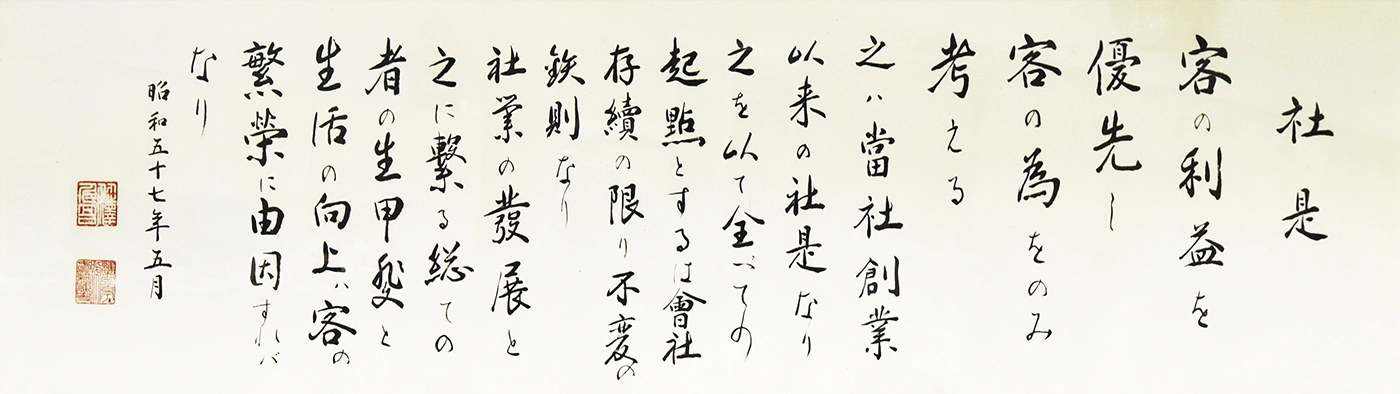 社是
客の利益を
優先し
客の為をのみ
考える
之ハ當社創業
以来の社是なり
之を以て全べての
起點とするは會社
存續の限り不変の
鉄則なり
社業の發展と
之に繋る総ての
者の生甲斐と
生活の向上ハ客の
繁榮に由因すれバ
なり
昭和五十七年五月